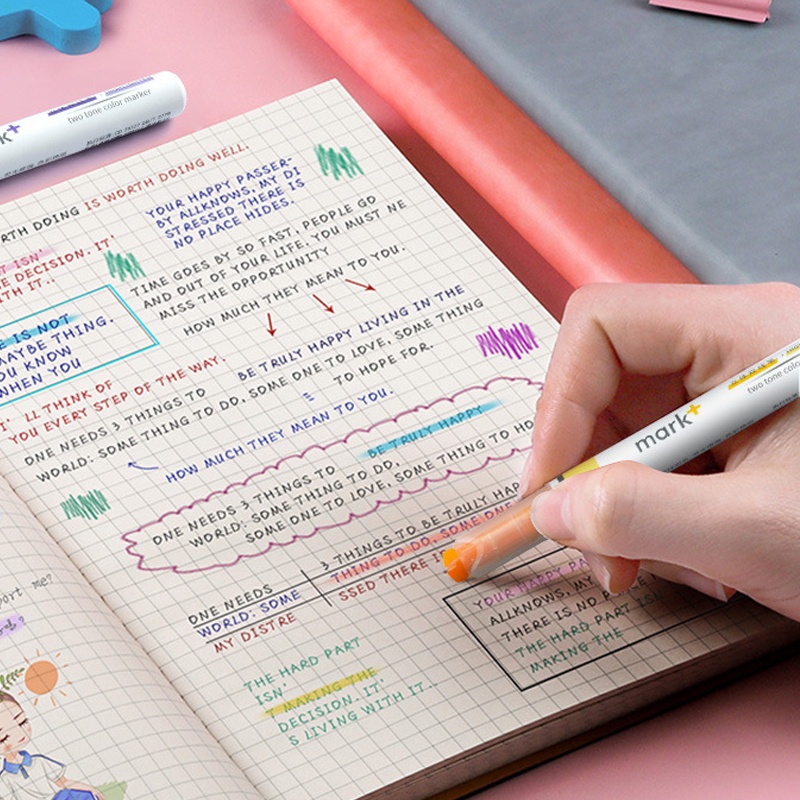 two tone color marker
RTH DOING IS WORTH DOING WELL.
YOUR HAPPY PASSER-
BY ALLKNOWS, MY DI
STRESSED THERE IS
NO PLACE HIDES.
T ISN'
E DECISION. IT'
ITH IT..
TIME GOES BY SO FAST, PEOPLE GO
AND OUT OF YOUR LIFE. YOU MUST NE
MISS THE OPPORTUNITY
HOW MUCH THEY MEAN TO YOU.
E IS NOT
MAYBE THING.
YOU KNOW
WHEN YOU
BE TRULY HAPPY LIVING IN THE
I' LL THINK OF
YOU EVERY STEP OF THE WAY.
ONE NEEDS 3 THINGS TO
WORLD: SOME THING TO DO, SOME ONE TO LOVE, SOME THING
TO HOPE FOR.
HOW MUCH THEY MEAN TO YOU.
BE TRULY HAPPY
ONE NEEDS 3 THINGS TO
WORLD: SOME THING TO DO,
SOME ONE TO LOVE, SOME THING TO HO
3 THINGS TO BE TRULY HAP
THING TO DO, SOME ONE
SSED THERE I
ONE NEEDS
WORLD: SOME
MY DISTRE
YOUR HAPPY PA
ALLKNOWS, MY
THERE IS NO PLACE
THE HARD PART ISN
MAKING THE
THE HARD PART
ISN'
T MAKING THE
DECISION. IT'
S LIVING WITH IT..
port me?
mark+
two tone colo